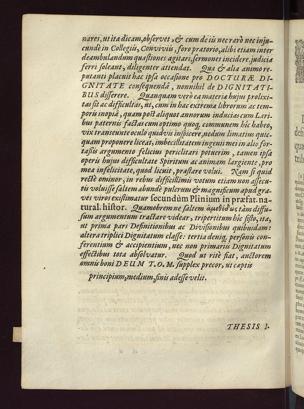 nares, ut ita dicam, observet, & cum de iis nec rarò nec injucundè
in Collegiis, Conviviis, foro pratorio, alibi etiam inter
deambulandum quæstiones agitari, sermones incidere, judicia
ferri soleant, diligenter attendat. Quo & alia animo reputanti
placuit hac ipsa occasione pro DOCTURÆ DIGNITATE
consequendâ, nonnihil de DIGNITATIBUS
disserere. Quanquam verò ea materia hujus prolixitas
sit ac difficultas, ut, cum in hac extrema librorum ac temporis
inopiâ, quam post aliquot annorum inducias cum Laribus
paternis factas cum optimo quoq; communem hic habeo,
vix transeunte oculo quidvis inspicere, nedum limatius quicquam
proponere liceat, imbecillitatem ingenii mei in alio fortassis
argumento felicius periclitari potuerim, tamen ipsa
operis hujus difficultate Spiritum ac animam largiente, pro
mea infelicitate, quod licuit, præstare volui. Nam si quid
rectè ominor, in rebus difficillimis votum etiam non assecutis
voluisse saltem abundè pulcrum & magnificum apud graves
viros existimatur secundùm Plinium in præfat. natural.
histor. Quamobrem ne saltem quæstio de tam diffusum
argumentum tractare videar, tripertitum hîc sisto, ita,
ut prima pars Definitionibus ac Divisionibus quibusdam:
altera triplici Dignitatum classe: tertia deniq; personis conferentium
& accipientium, nec non primariis Dignitatum
effectibus tota absolvatur. Quod ut ritè fiat, auctorem
omnis boni DEUM T.O.M. supplex precor, ut captis
principium, medium, finis adesse velit.
THESIS I.